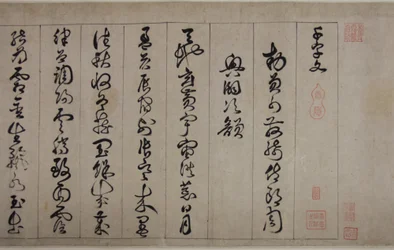 千字文
勅員外散騎侍郎周
興嗣次韻
天地玄黃宇宙洪荒日月
盈昃辰宿列張寒來暑
往秋收冬藏閏餘成歲
律呂調陽雲騰致雨露
結為霜金生麗水玉出